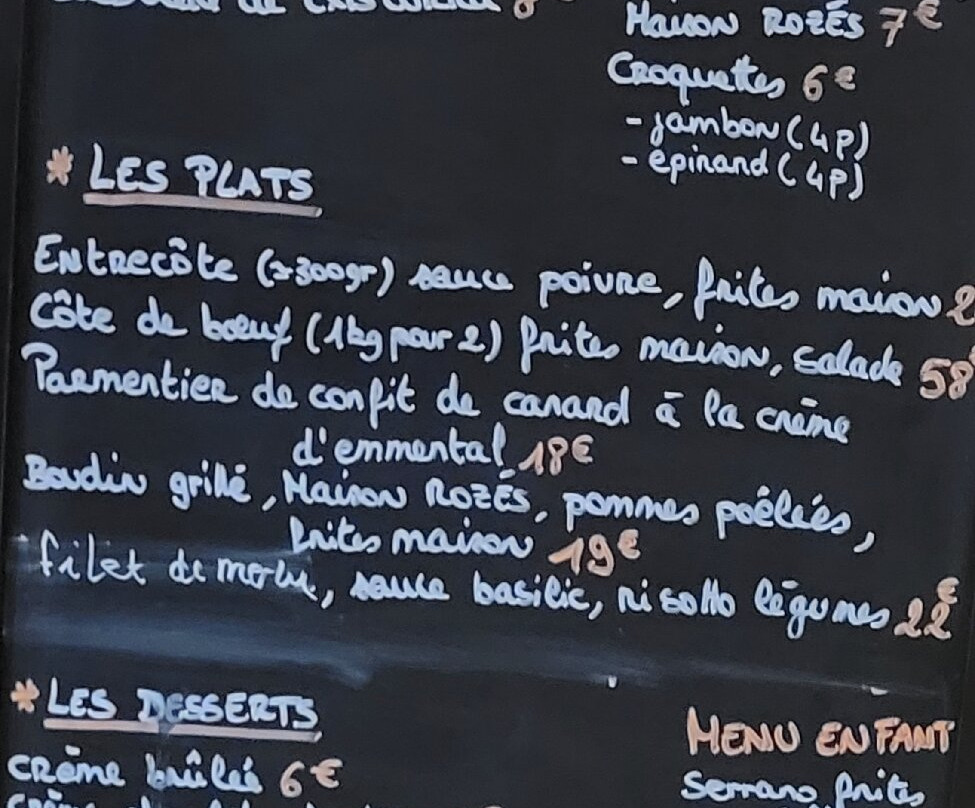 Maison Rozés 7€
Croquettes 6€
- jambon (4p)
- épinard (4p)
* LES PLATS
Entrecôte (±300gr) sauce poivre, frites maison 2
Côte de boeuf (1kg pour 2) frites maison, salade 58
Parmentier de confit de canard à la crème
d'emmental 18€
Boudin grillé, Maison Rozés, pommes poêlées,
frites maison 19€
filet de morue, sauce basilic, risotto légumes 22€
* LES DESSERTS
crème brûlée 6€
MENU ENFANT
Serrano frites